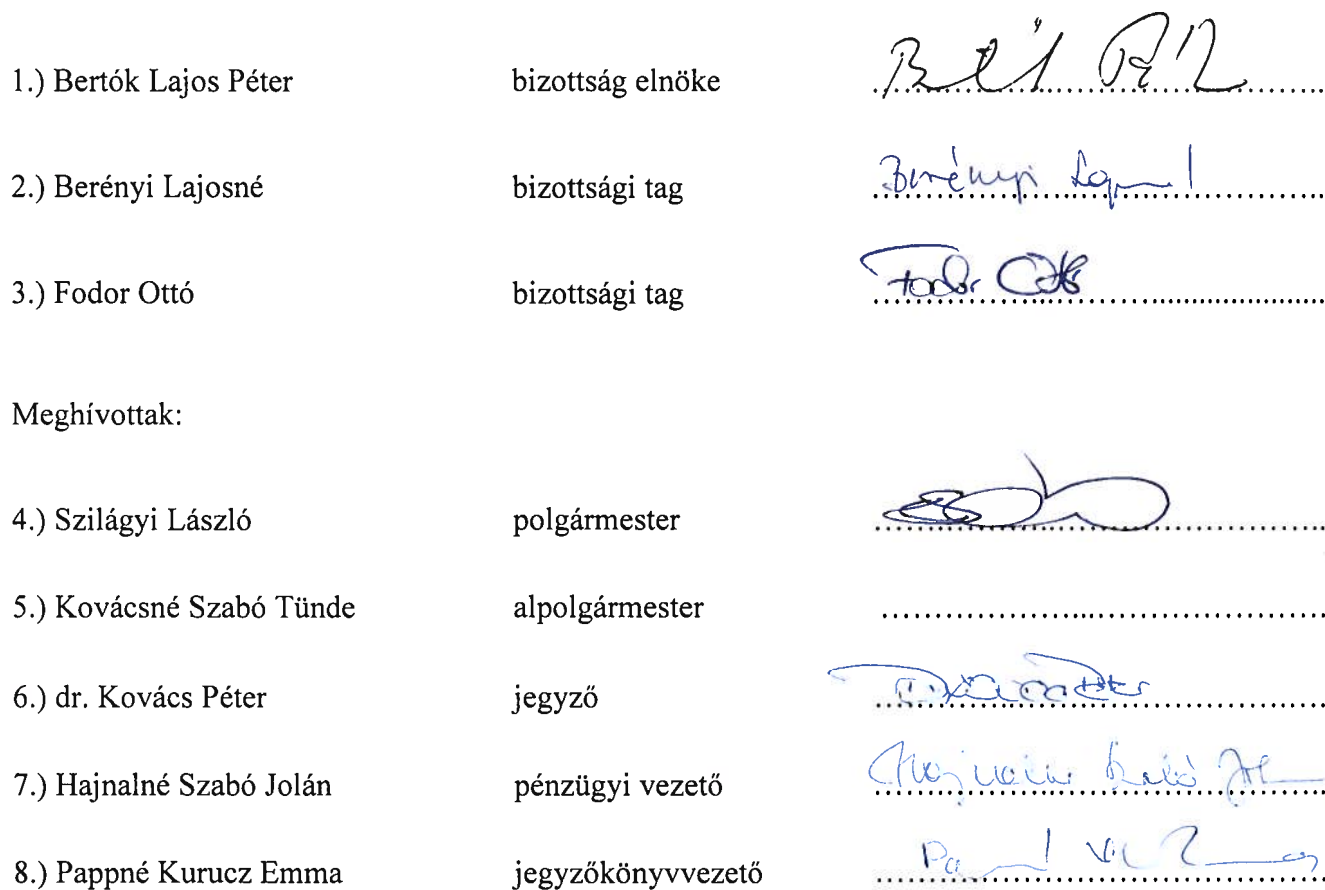 1.) Bertók Lajos Péter bizottság elnöke
2.) Berényi Lajosné bizottsági tag Berényi
3.) Fodor Ottó bizottsági tag Fodor Ottó
Meghívottak:
4.) Szilágyi László polgármester
5.) Kovácsné Szabó Tünde alpolgármester
6.) dr. Kovács Péter jegyző
7.) Hajnalné Szabó Jolán pénzügyi vezető
8.) Pappné Kurucz Emma jegyzőkönyvvezető